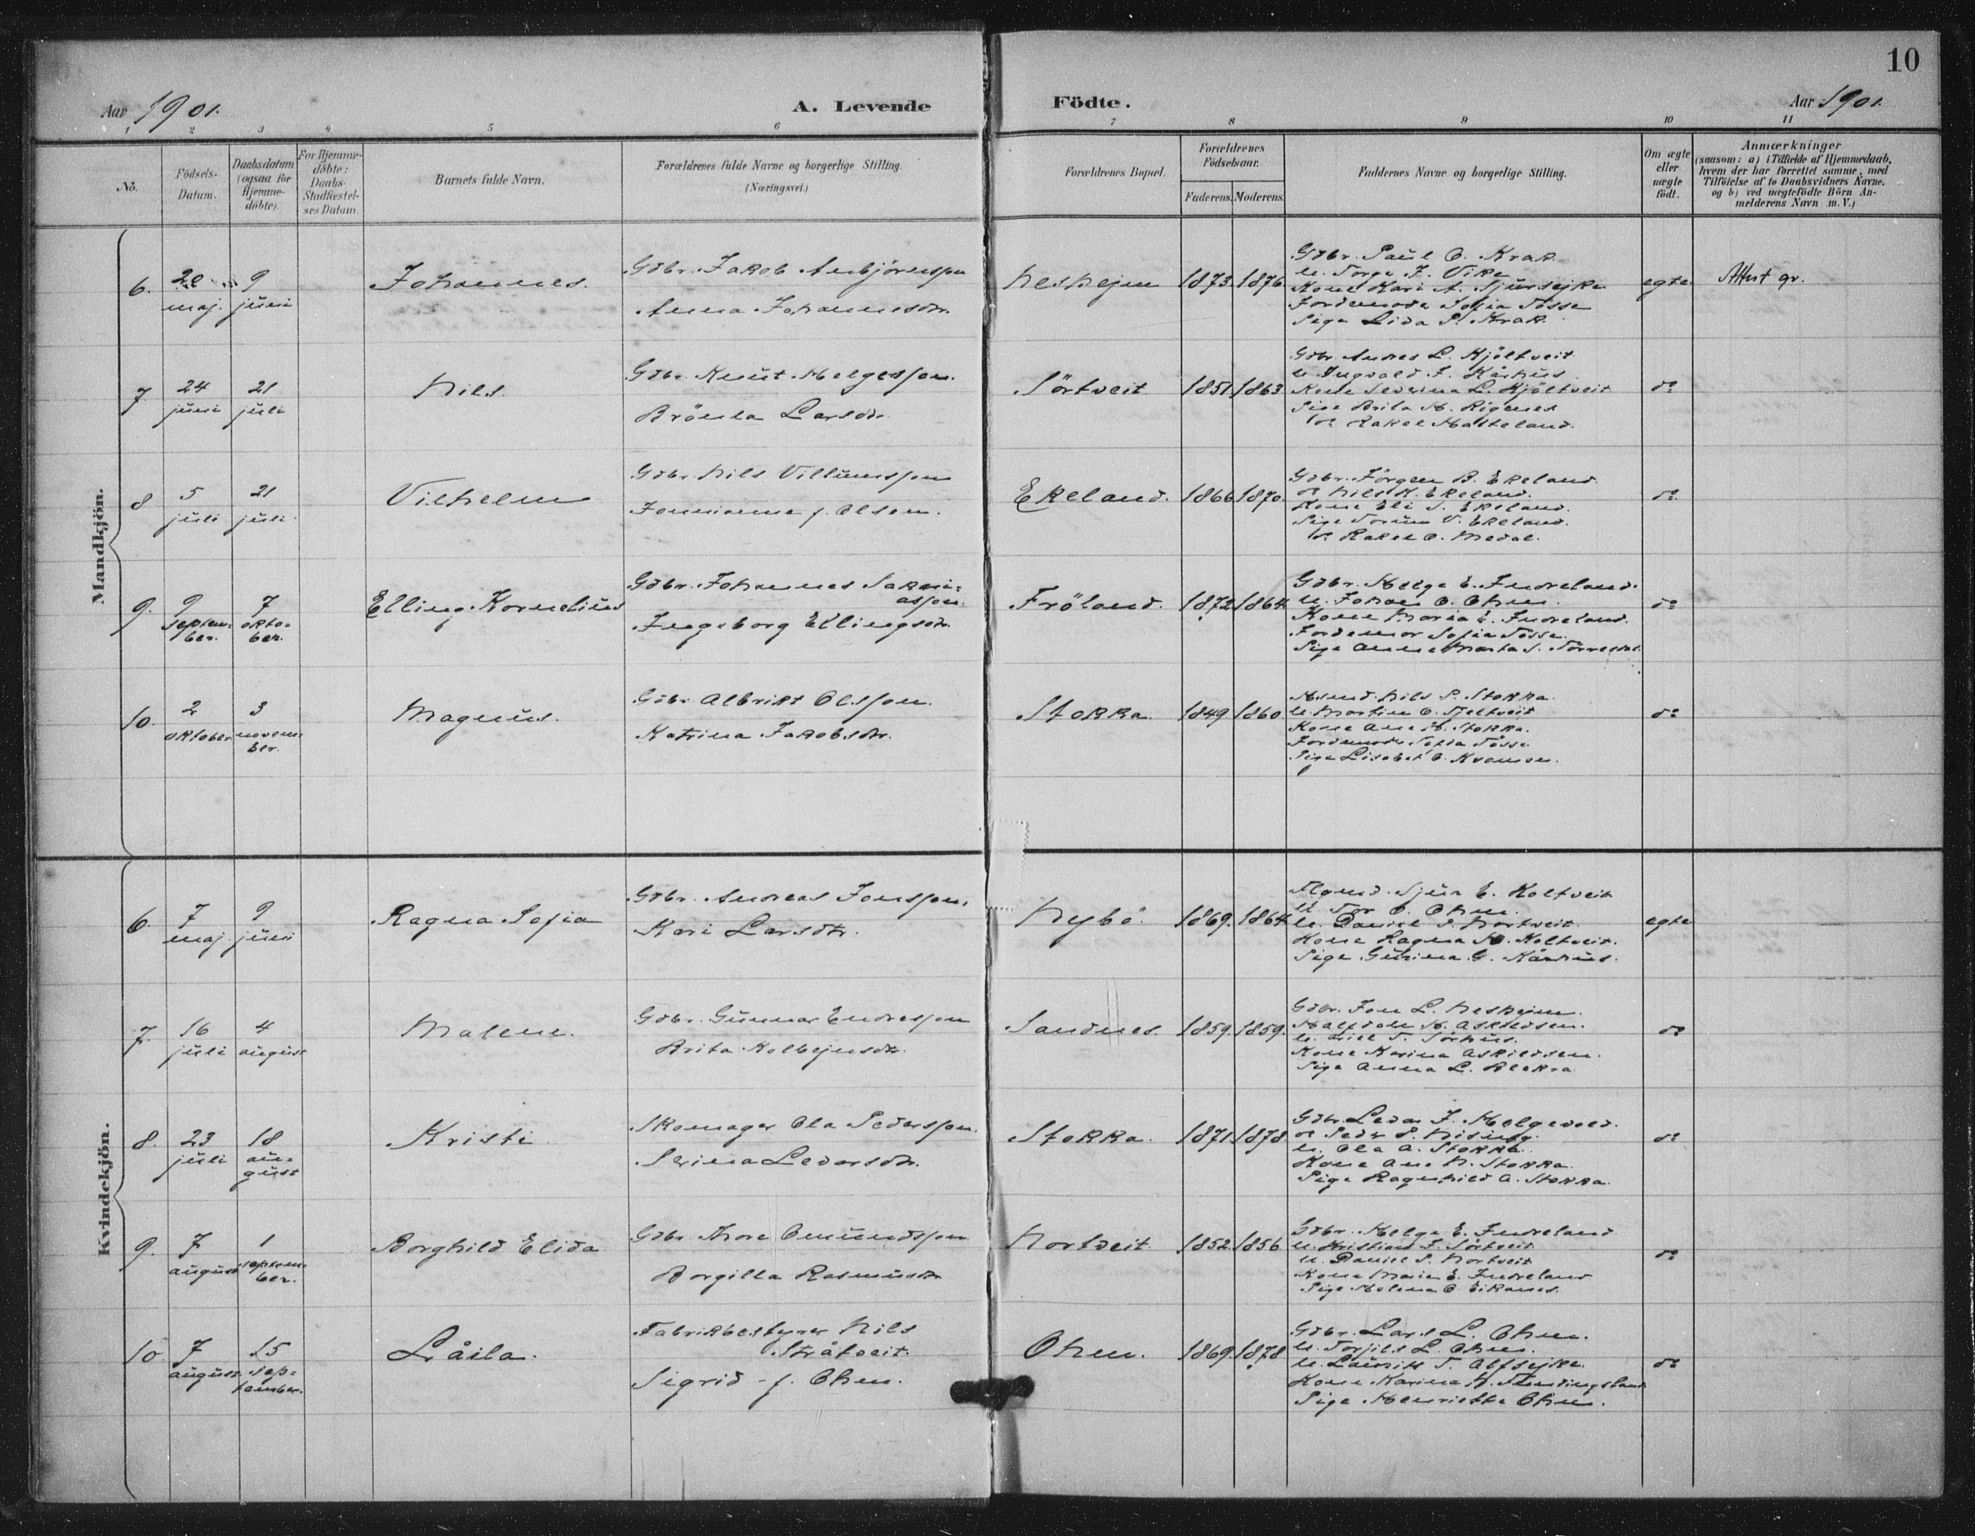 10
Aar 1901. A. Levende Födte. Aar 1901.
1 2 3 4 5 6 7 8 9 10 11
No.
Födsels-
Datum.
Daabsdatum
(ogsaa for
Hjemme-
döbte).
For Hjemme-
döbte:
Daabs-
Stadfæstel-
ses Datum.
Barnets fulde Navn.
Forældrenes fulde Navne og borgerlige Stilling.
(Næringsvei.)
Forældrenes Bopæl.
Forældrenes
Födselsaar.
Faderens. Moderens.
Faddernes Navne og borgerlige Stilling.
Om ægte
eller
uægte
födt.
Anmærkninger
(saasom: a) i Tilfælde af Hjemmedaab,
hvem der har forrettet samme, med
Tilföielse af to Daabsvidners Navne,
og b) ved uægtefödte Börn An-
melderens Navn m. V.)
Mandkjön.
6. 20 maj. 9 juni
Johannes.
Gdbr. Jakob Anbjörnsson
Anna Johannesdr.
Neshejm 1873. 1876.
Gdbr. Paul O. Krak.
U. Torge J. Vike
Kone Kari A. Sjursejke
Jordemoder Sofia Tösse
Pige Lida P. Krak.
egte
Attest gr.
7 24 juni 21 juli
Nils.
Gdbr. Knut Helgesson.
Brönla Larsdr.
Sörtveit 1851. 1863.
Gdbr. Andres L. Kjöltveit
U. Ingvald J. Kårhus
Kone Severina L. Kjöltveit
Pige Brita H. Rigenes
do Rakel Hasteland.
do
8 5 juli 21 juli.
Vilhelm
Gdbr. Nils Villumsson
Jonnianna f. Olsen.
Ekeland. 1866. 1870.
Gdbr. Jörgen B. Ekeland.
do Nils K. Ekeland.
Kone Eli S. Ekeland.
Pige Torina V. Ekeland.
do Rakel O. Medal.
do
9. 9 septem-
ber. 7 okto-
ber.
Elling Kornelius
Gdbr. Johannes Sakari-
asson.
Ingeborg Ellingsdr.
Fröland. 1872. 1864.
Gdbr. Helge E. Indreland.
U. Johan O. Ohm.
Kone Maria E. Indreland.
Jordemor Sofia Tösse.
Pige Anna Marta S.
do
10. 2 oktober 3 novem-
ber.
Magnus.
Gdbr. Albrikt Olsson.
Katrina Jakobsdr.
Stokka. 1849. 1860.
Nils P. Stokka.
U. Martin O.
Kone Ane H. Stokka.
Jordemoder Sofia Tösse
Pige Lisabet O.
do
Kvindekjön.
6. 7 maj 9 juni
Ragna Sofia
Gdbr. Andreas Jonsson.
Kari Larsdtr.
Nybö. 1869. 1864.
Sjur E. Koltveit
U. Tor O. Ohm.
U. Daniel S. Nortveit.
Kone Ragna M. Koltveit.
Pige Gurina G. Kårhus.
egte
7. 16 juli 4 august
Malene.
Gdbr. Gunnar Endresson
Brita Kolbejnsdr.
Sandnes. 1859. 1859.
Gdbr. Jon L. Neshejm.
Halfdan H. Askildsen.
Kone Karina Askildsen.
Pige Anna L. Blekra
do
8. 23 juli 18 au-
gust
Kristi
Skomager Ola Pedersson.
Serina Ledorsdtr.
Stokka. 1871. 1878.
Gdbr. Ledor J.
do Peder P.
U. Ola A. Stokka.
Kone Ane N. Stokka.
Pige Ragnhild A. Stokka.
do
9. 7 august 1 septem-
ber.
Borghild Elida
Gdbr. Tore Omundsson
Borgilla Rasmusdr.
Nortveit 1852. 1856.
Gdbr. Helge E. Indreland
U. Kristian J. Sörtveit
U. Daniel S. Nortveit
Kone Maria E. Indreland
Pige Helena O. Eikanes.
do
10. 7 august 15 sep-
tember.
Låila.
Fabrikbestyrer Nils
Stråtveit.
Sigrid f. Ohm.
Ohm. 1869. 1878.
Gdbr. Lars L. Ohm.
U. Torjils L. Ohm.
U. Lauritz T. Alfsejke
Kone Karina H.
Pige Henriette Ohm.
do